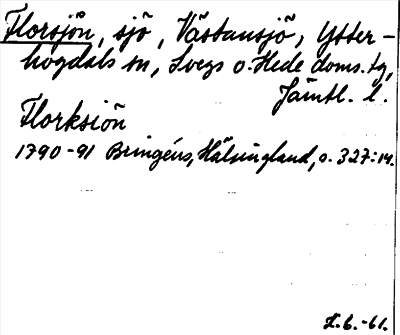 Florsjön, sjö, Västansjö, Ytter-
hogdals sn, Svegs o. Hede doms. tg,
Jämtl. l.
Florksiön
1790-91 Bringéus, Hälsingland, s. 327:14.
L.b.-61.